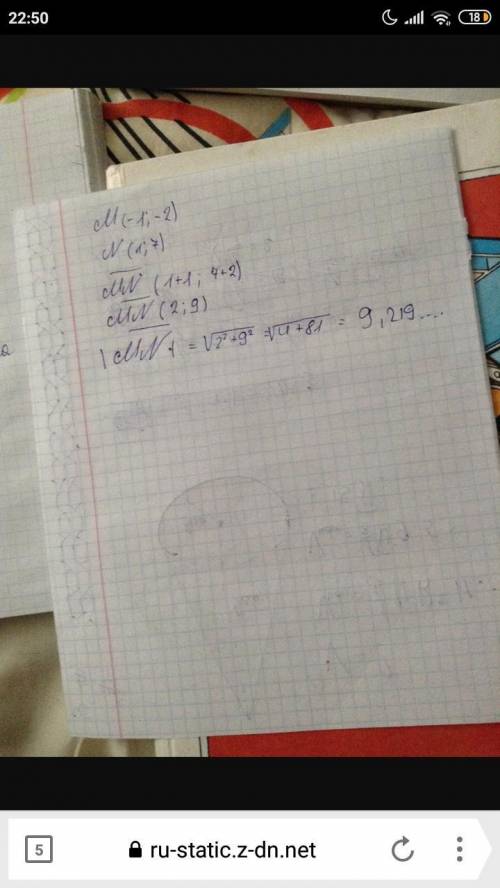 22:50
18
M(-1;-2)
N(1;7)
MN (1+1; 7+2)
MN (2; 9)
|MN| = √2²+9² = √4+81 = 9,219....
5
ru-static.z-dn.net